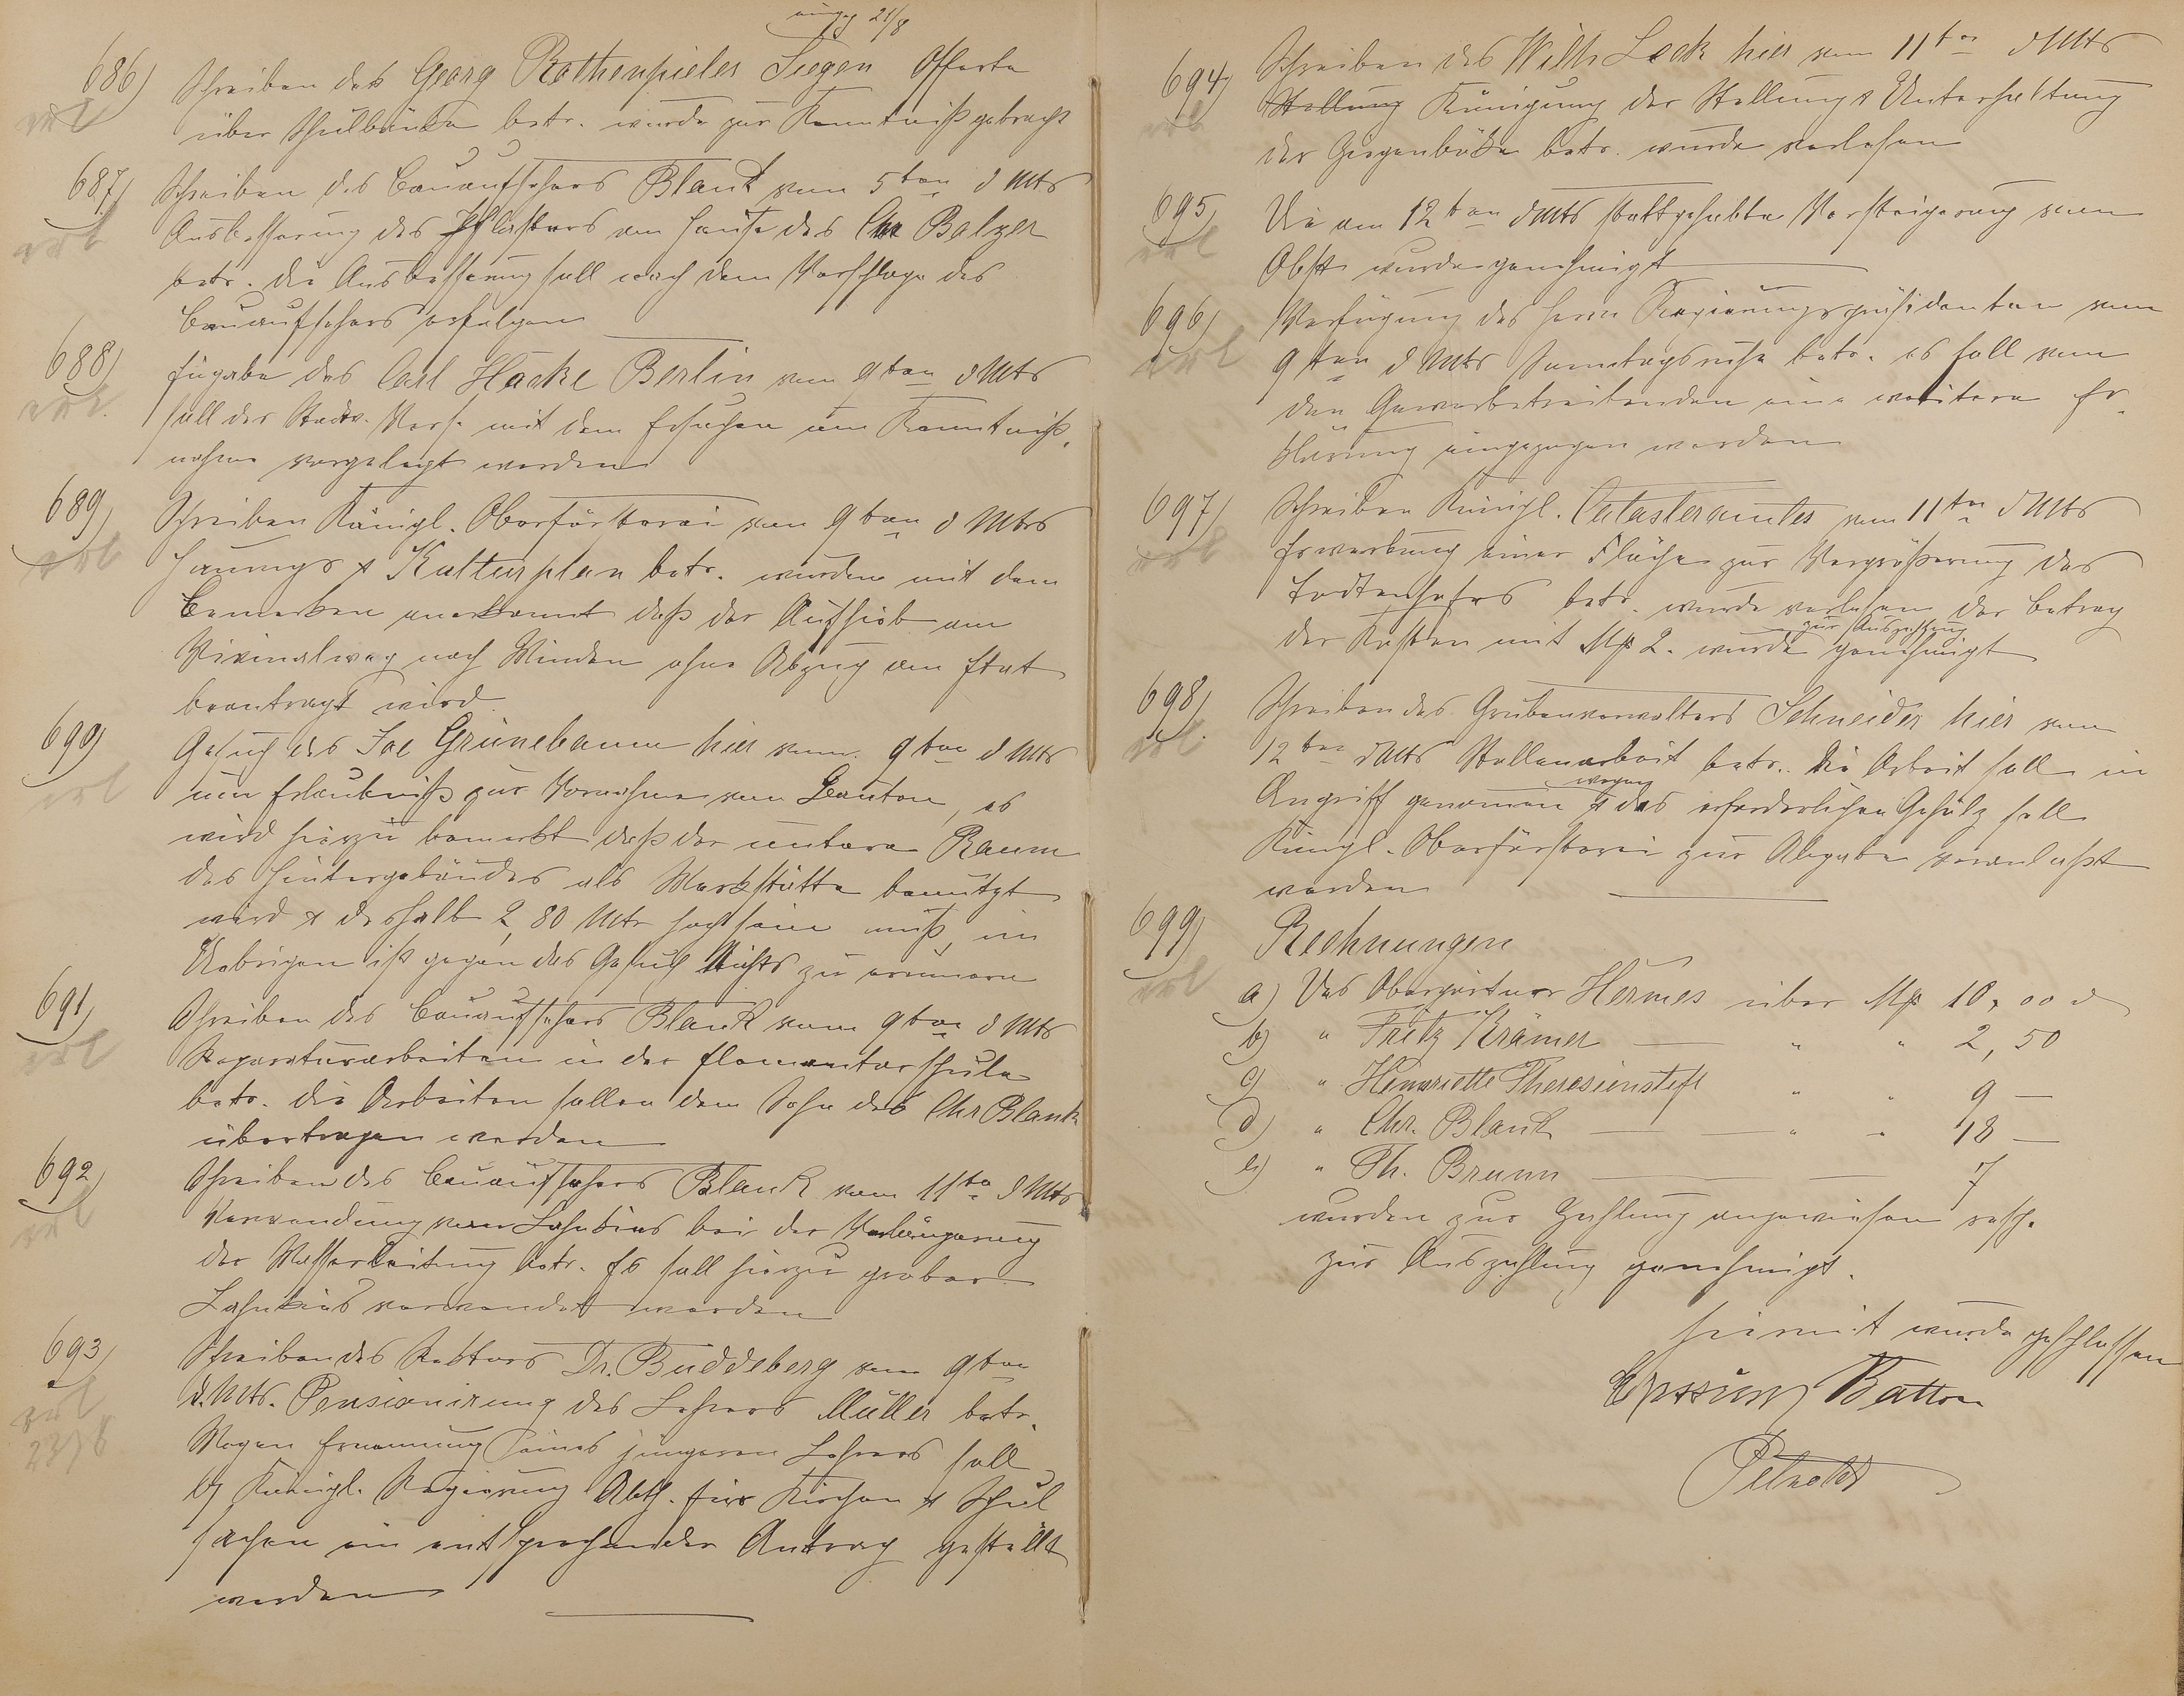 eingeg 21/8
686) Schreiben des Georg Rothenpieler Siegen Offerte
erl über Schulbänke betr. wurde zur Kenntniß gebracht
687) Schreiben des Bauaufsehers Blank vom 5ten d Mts
erl Ausbesserung des Pflasters am Hause des Chr Balzer
betr. die Ausbesserung soll nach dem Vorschlage des
Bauaufsehers erfolgen
688) Eingabe des Carl Hacke Berlin vom 9ten d Mts
erl. soll der Stadtv. Vers. mit dem Ersuchen um Kenntniß-
nahme vorgelegt werden
689) Schreiben Königl. Oberförsterei vom 9ten d Mts
erl Hauungs & Kulturplan betr. wurden mit dem
Bemerken anerkannt daß der Aufhieb am
Vicinalweg nach Winden ohne Abzug am Etat
beantragt wird
690) Gesuch des Joe Grünebaum hier vom 9ten d Mts
erl um Erlaubniß zur Vornahme von Bauten, es
wird hierzu bemerkt daß der untere Raum
des Hintergebäudes als Werkstätte benutzt
wird & deshalb 2,80 Mtr hoch sein muß, im
Uebrigen ist gegen das Gesuch Nichts zu erinnern
691) Schreiben des Bauaufsehers Blank vom 9ten d Mts
erl Reparaturarbeiten in der Elementarschule
betr. die Arbeiten sollen dem Sohn des Chr Blank
übertragen werden
692) Schreiben des Bauaufsehers Blank vom 11ten d Mts
erl Verwendung von Lahnkies bei der Verlängerung
der Wasserleitung betr. Es soll hierzu grober
Lahnkies verwendet werden
693) Schreiben des Rektors Dr. Buddeberg vom 9ten
erl d. Mts. Pensionirung des Lehrers Müller betr.
23/8 Wegen Ernennung eines jüngeren Lehrers soll
bei Königl. Regierung Abth. für Kirchen & Schul
sachen ein entsprechender Antrag gestellt
werden
694) Schreiben des Wilh Leck hier vom 11ten d Mts
erl Stellung Kündigung der Stellung & Unterhaltung
der Ziegenböcke betr. wurde verlesen
695) Die am 12ten d Mts stattgehabte Versteigerung vom
erl Obst wurde genehmigt
696) Verfügung des Herrn Regierungspräsidenten vom
erl 9ten d Mts Sonntagsruhe betr. es soll von
den Gewerbetreibenden eine weitere Er-
klärung eingezogen werden
697) Schreiben Königl. Catasteramtes vom 11ten d Mts
erl Erwerbung einer Fläche zur Vergrößerung des
Todtenhofes betr. wurde verlesen der Betrag
zur Auszahlung
der Kosten mit Mk 2. wurde genehmigt
698) Schreiben des Grubenverwalters Schneider hier vom
erl. 12ten d Mts Stollenarbeit betr. die Arbeit soll in
wegen
Angriff genommen & des erforderlichen Gehölz soll
Königl. Oberförsterei zur Abgabe veranlaßt
werden
699) Rechnungen
erl a) Des Obergärtner Hermes über Mk 10,00 d
b) " Fritz Krämer — " " 2,50
c) " Henriette Theresienstift " " 9 —
d) " Chr. Blank — — " " 18 —
e) " Th. Brunn — — 7
wurden zur Zahlung angewiesen resp.
zur Auszahlung genehmigt.
Hiermit wurde geschlossen
Batton